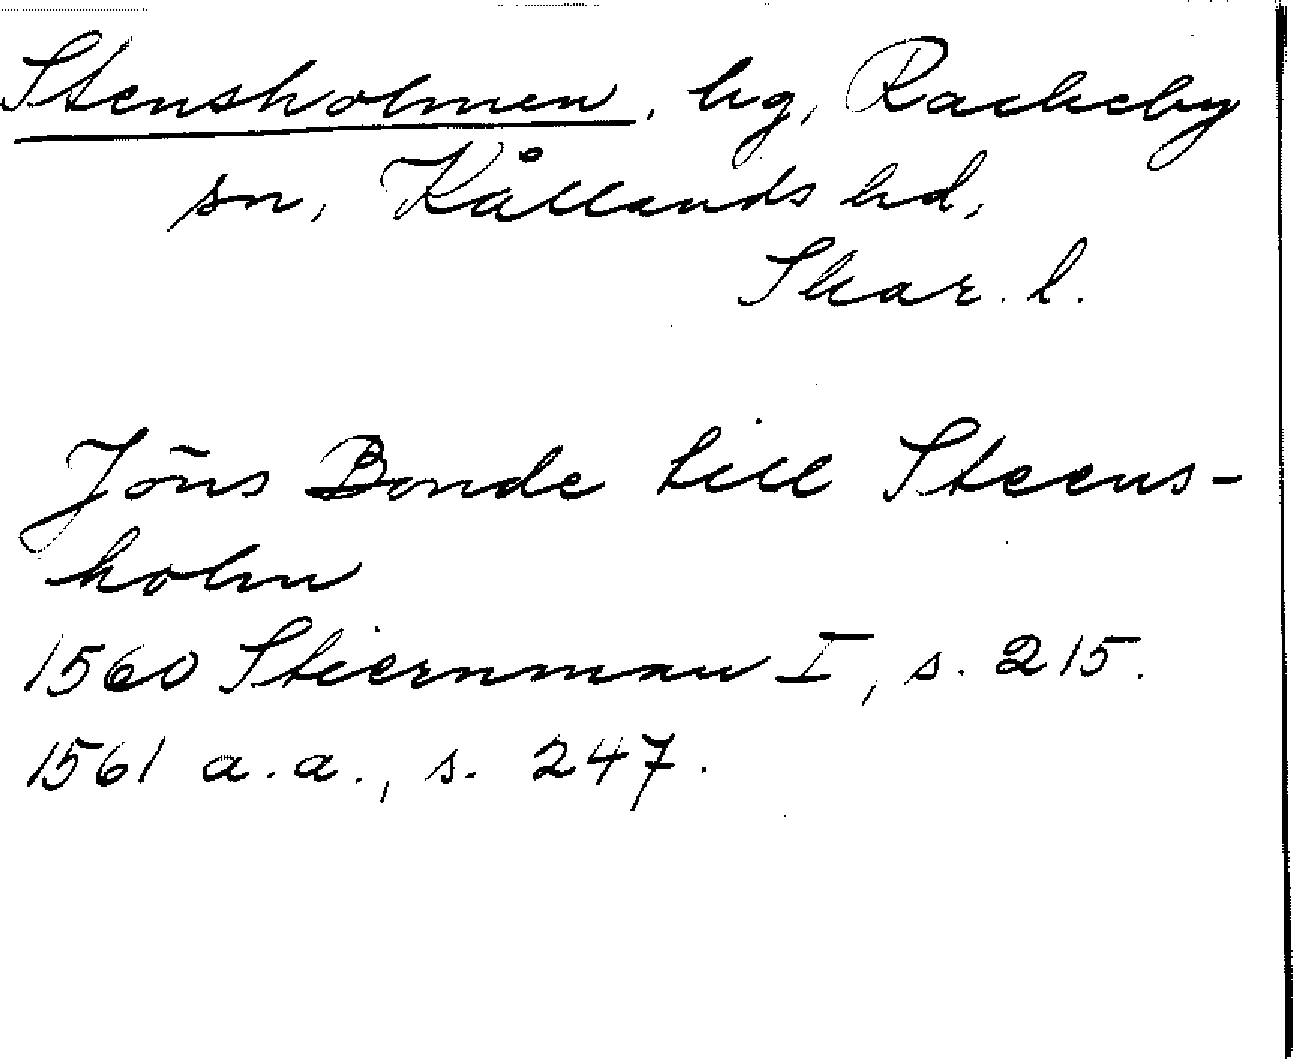 Stensholmen, hg, Rackeby
sn, Kållands hd,
Skar. l.
Jöns Bonde till Steens-
holm
1560 Stiernman I, s. 215.
1561 a.a., s. 247.